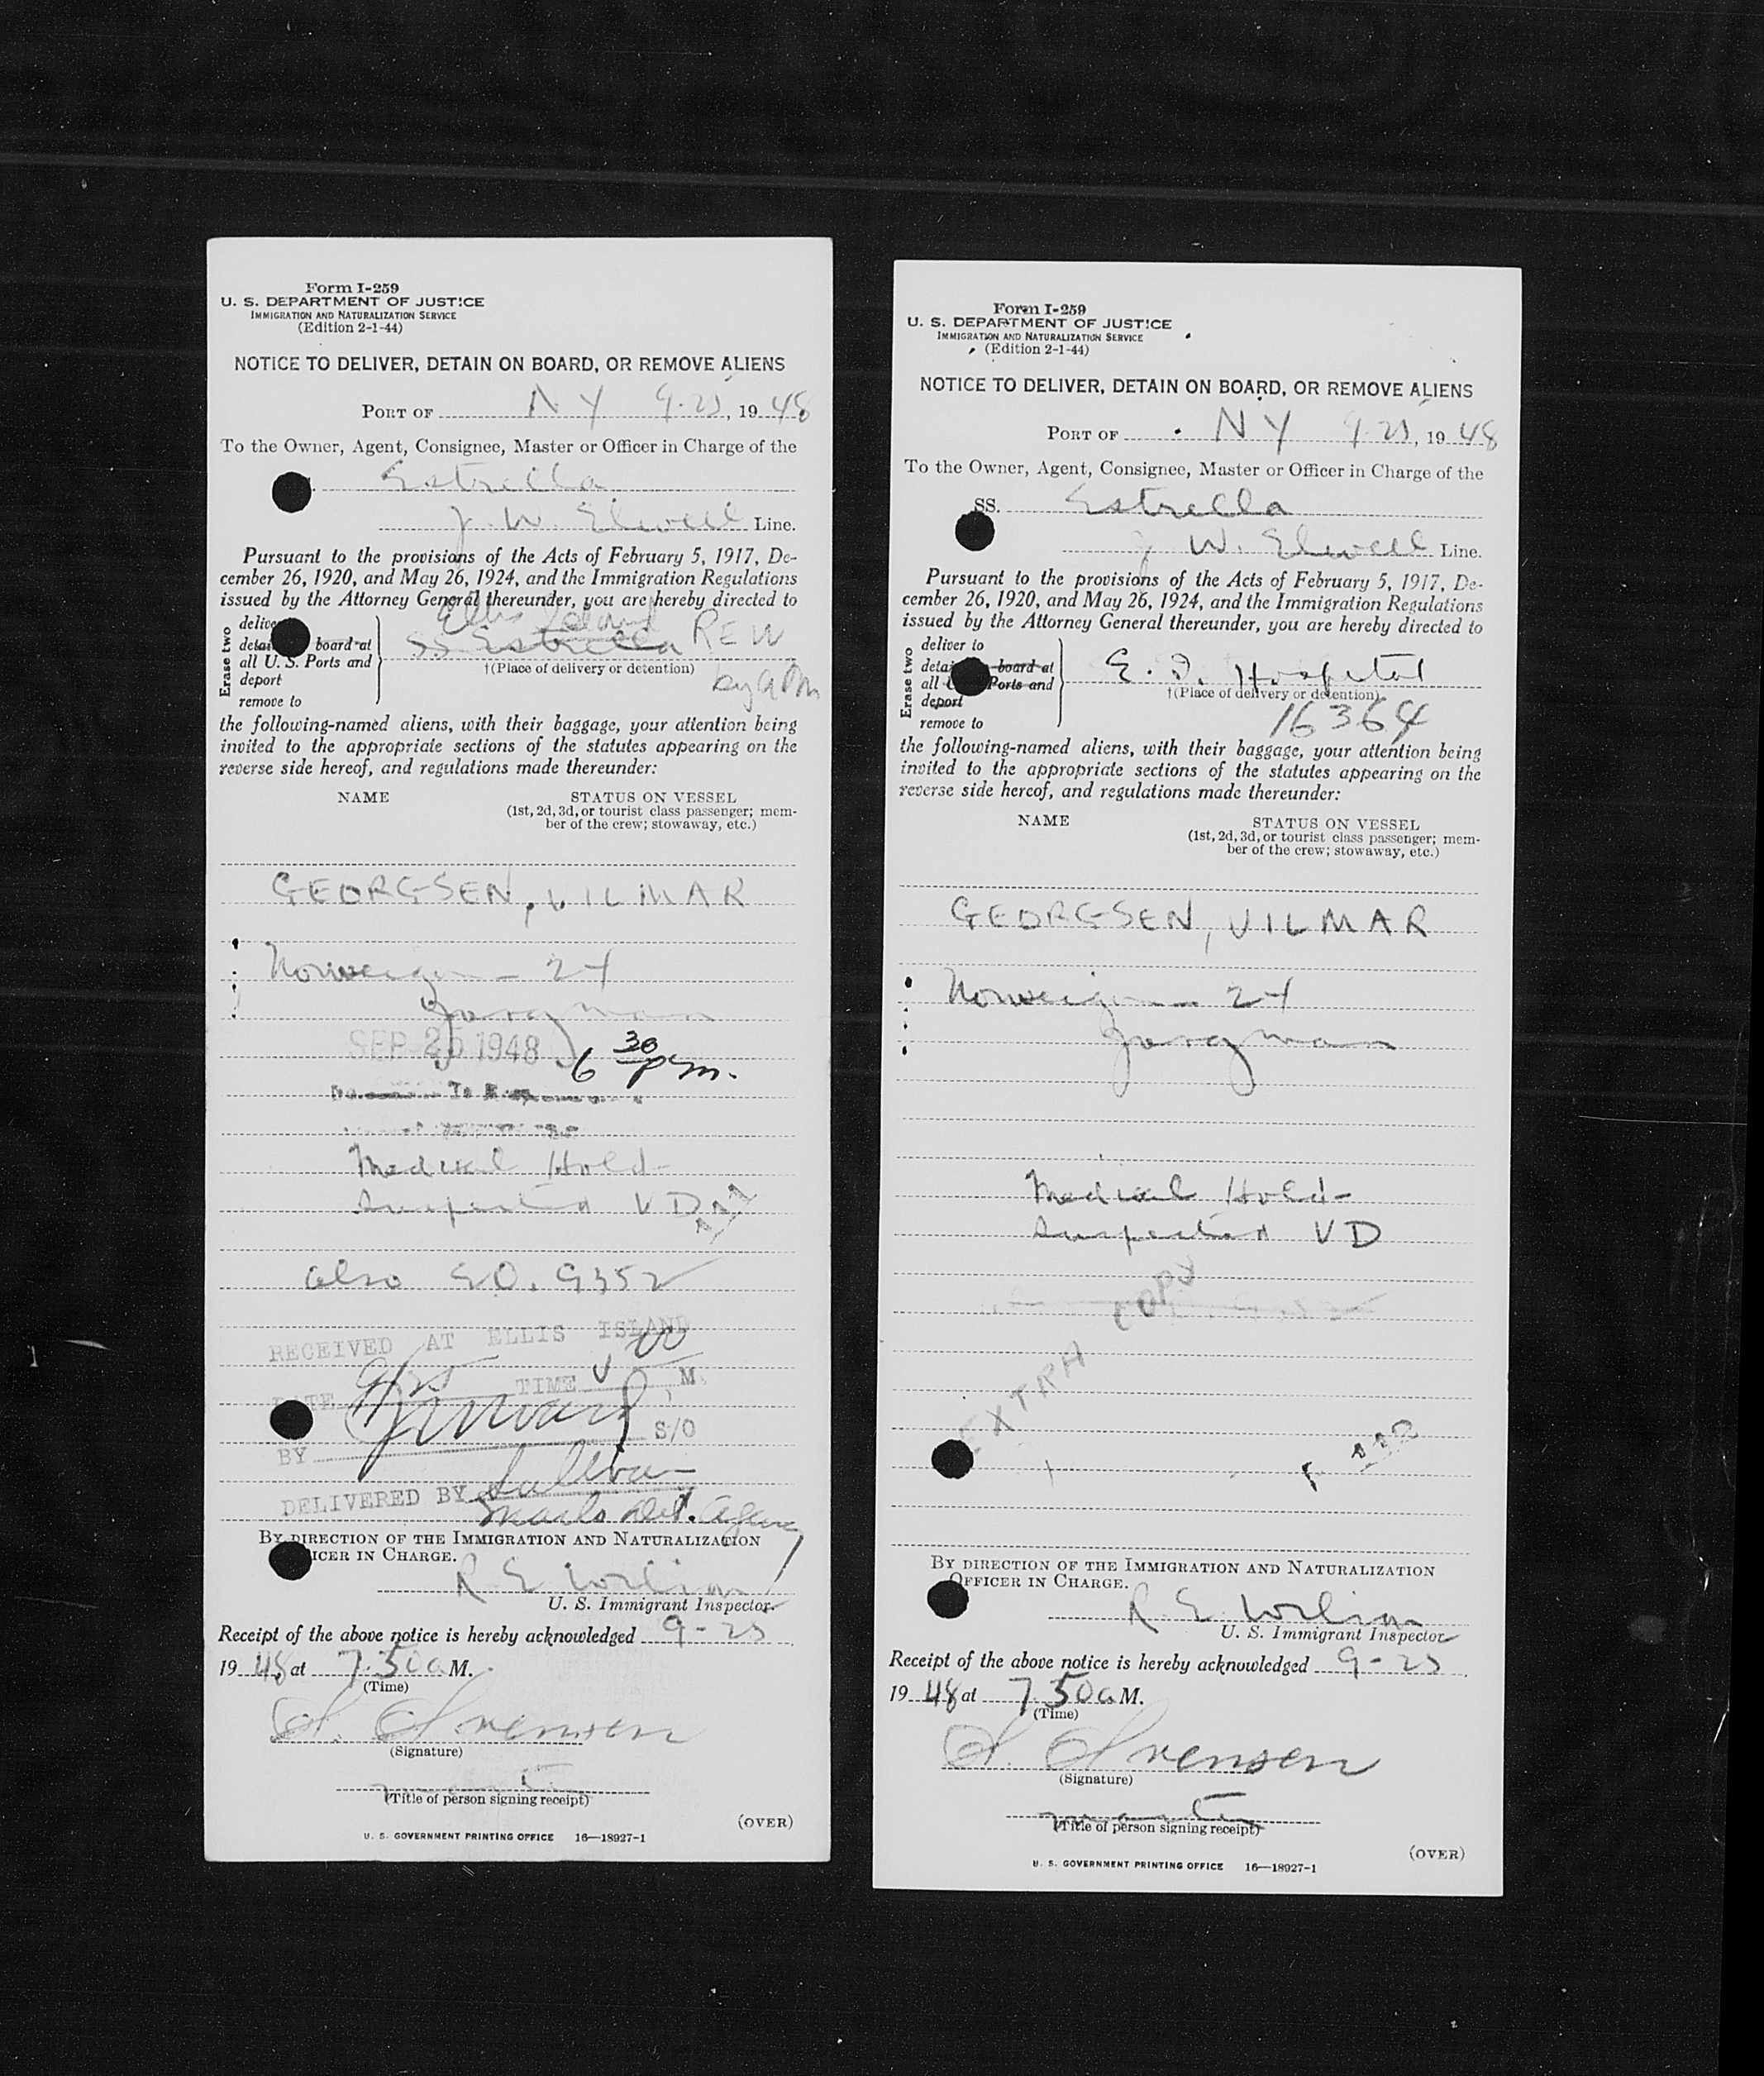 Form I-259
U. S. DEPARTMENT OF JUSTICE
IMMIGRATION AND NATURALIZATION SERVICE
(Edition 2-1-44)
NOTICE TO DELIVER, DETAIN ON BOARD, OR REMOVE ALIENS
PORT OF N Y 9-25, 1948
To the Owner, Agent, Consignee, Master or Officer in Charge of the
Estrella
J. W. Elwell Line.
Pursuant to the provisions of the Acts of February 5, 1917, De-
cember 26, 1920, and May 26, 1924, and the Immigration Regulations
issued by the Attorney General thereunder, you are hereby directed to
Ellis Island
Erase two
board at SS Estrella REW
all U. S. Ports and
†(Place of delivery or detention)
deport
remove to
the following-named aliens, with their baggage, your attention being
invited to the appropriate sections of the statutes appearing on the
reverse side hereof, and regulations made thereunder:
NAME STATUS ON VESSEL
(1st, 2d, 3d, or tourist class passenger; mem-
ber of the crew; stowaway, etc.)
GEORGSEN, VILMAR
Norweigian - 24
Jorgman
SEP 25 1948 6 30 pm.
Medical Hold-
Suspected VD
also E.O. 9352
RECEIVED AT ELLIS ISLAND
DATE 9/25 TIME 00 M.
BY S/O
DELIVERED BY Sullivan
Det. Agency
BY DIRECTION OF THE IMMIGRATION AND NATURALIZATION
ICER IN CHARGE.
R. E. Wilson
U. S. Immigrant Inspector.
Receipt of the above notice is hereby acknowledged 9-25,
1948 at 7.50a M.
(Time)
S. Sørensen
(Signature)
master
(Title of person signing receipt)
(OVER)
U. S. GOVERNMENT PRINTING OFFICE 16—18927-1
Form I-259
U. S. DEPARTMENT OF JUSTICE
IMMIGRATION AND NATURALIZATION SERVICE
(Edition 2-1-44)
NOTICE TO DELIVER, DETAIN ON BOARD, OR REMOVE ALIENS
PORT OF N Y 9-25, 1948
To the Owner, Agent, Consignee, Master or Officer in Charge of the
SS. Estrella
J. W. Elwell Line.
Pursuant to the provisions of the Acts of February 5, 1917, De-
cember 26, 1920, and May 26, 1924, and the Immigration Regulations
issued by the Attorney General thereunder, you are hereby directed to
Erase two
deliver to
board at E. I. Hospital
all Ports and
†(Place of delivery or detention)
deport
16364
remove to
the following-named aliens, with their baggage, your attention being
invited to the appropriate sections of the statutes appearing on the
reverse side hereof, and regulations made thereunder:
NAME STATUS ON VESSEL
(1st, 2d, 3d, or tourist class passenger; mem-
ber of the crew; stowaway, etc.)
GEORGSEN, VILMAR
Norweigian - 24
Jorgman
Medical Hold-
Suspected VD
EXTRA COPY
BY DIRECTION OF THE IMMIGRATION AND NATURALIZATION
OFFICER IN CHARGE.
R. E. Wilson
U. S. Immigrant Inspector
Receipt of the above notice is hereby acknowledged 9-25,
1948 at 7.50a M.
(Time)
S. Sørensen
(Signature)
master
(Title of person signing receipt)
(OVER)
U. S. GOVERNMENT PRINTING OFFICE 16—18927-1